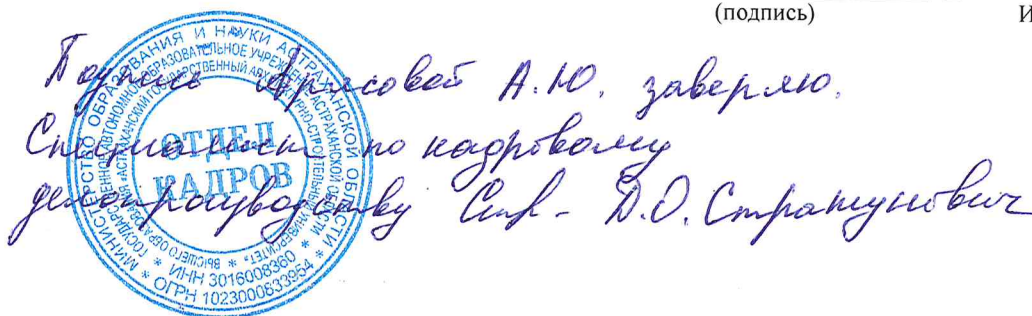 (подпись)
И
Подпись Арисовой А.Ю. заверяю.
Специалист по кадровому
делопроизводству Д.О. Стратунович
МИНИСТЕРСТВО ОБРАЗОВАНИЯ И НАУКИ АСТРАХАНСКОЙ ОБЛАСТИ
* ИНН 3016008360 *
* ОГРН 1023000833954 *
ОТДЕЛ
КАДРОВ